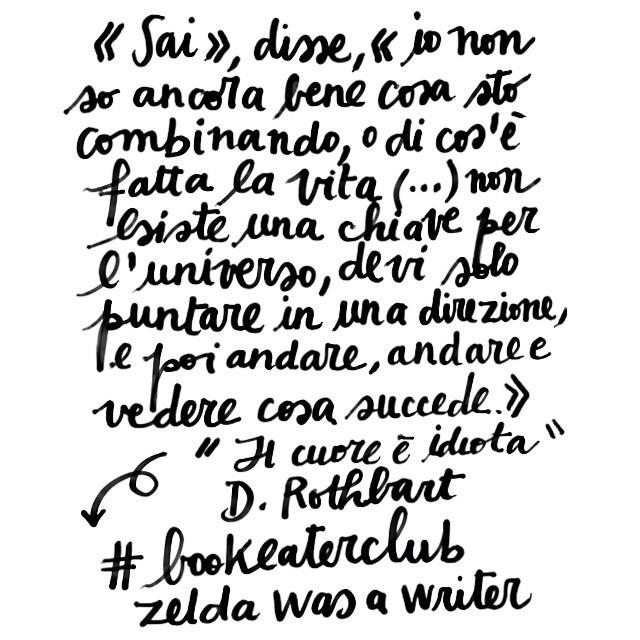 « Sai », disse, « io non
so ancora bene cosa sto
combinando, o di cos'è
fatta la vita (...) non
esiste una chiave per
l'universo, devi solo
puntare in una direzione,
e poi andare, andare e
vedere cosa succede. »
" Il cuore è idiota "
D. Rothbart
# bookeaterclub
zelda was a writer